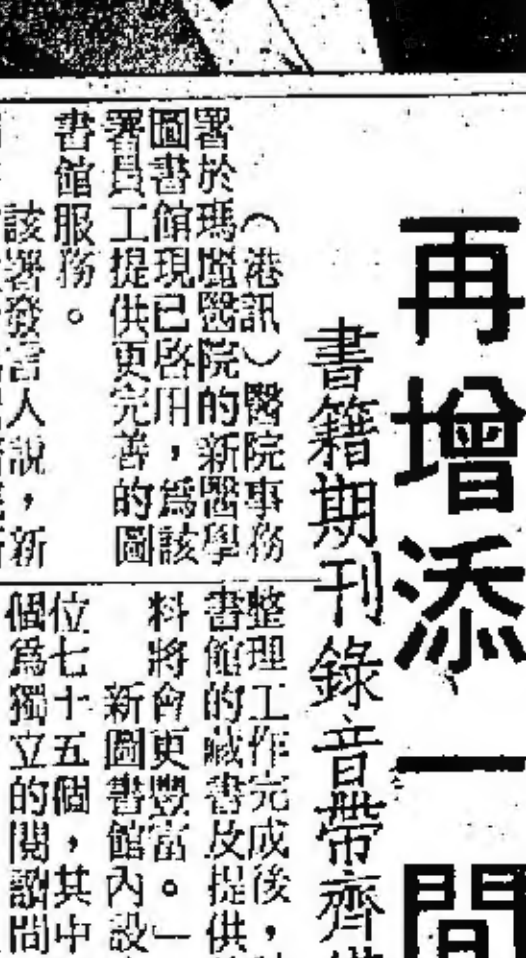 再增添一間
書籍期刊錄音帶齊
（港訊）醫院事務
署於瑪麗醫院的新醫學
圖書館現已啓用，爲該
署員工提供更完善的圖
書館服務。
該署發言人說，新
整理工作完成後，
書館的藏書及提供
料將會更豐富。」
新圖書館內設
位七十五個，其中
個爲獨立的閱讀間